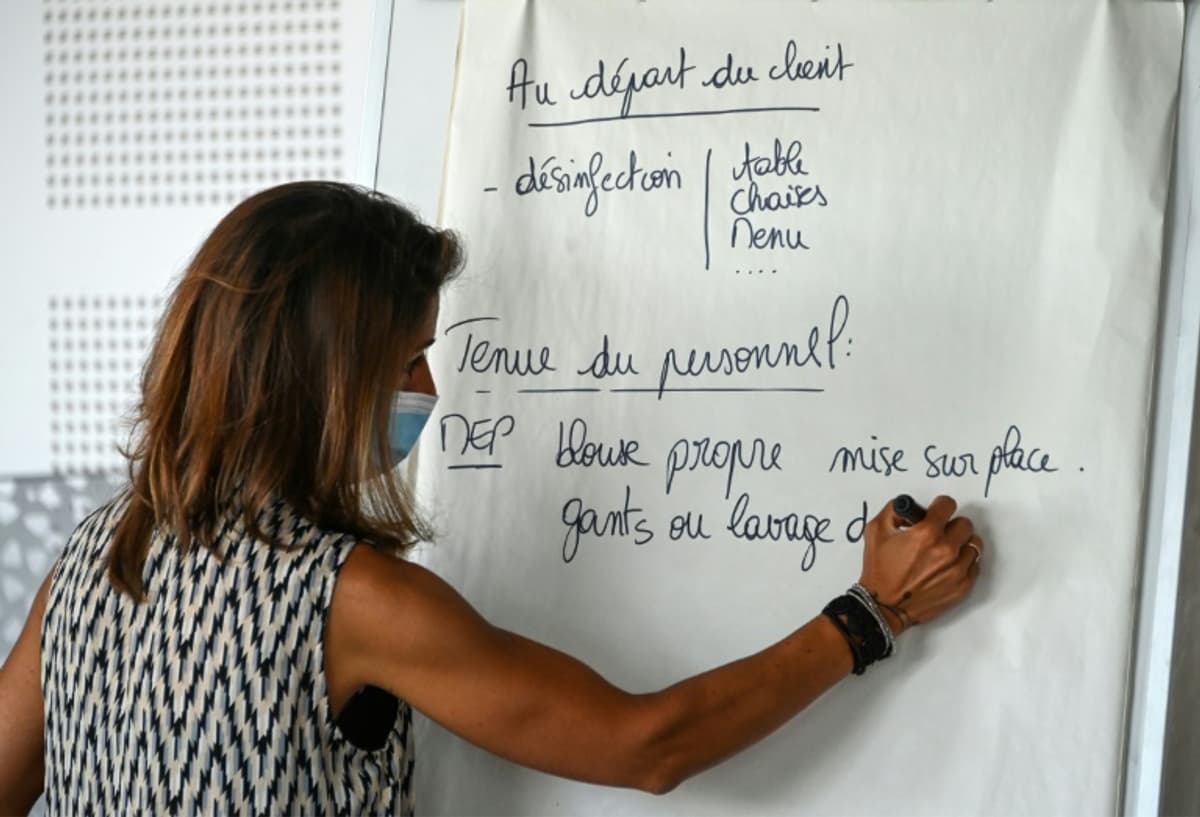 Au départ du client
- désinfection | table
chaises
Menu
....
Tenue du personnel:
DEP blouse propre mise sur place.
gants ou lavage d